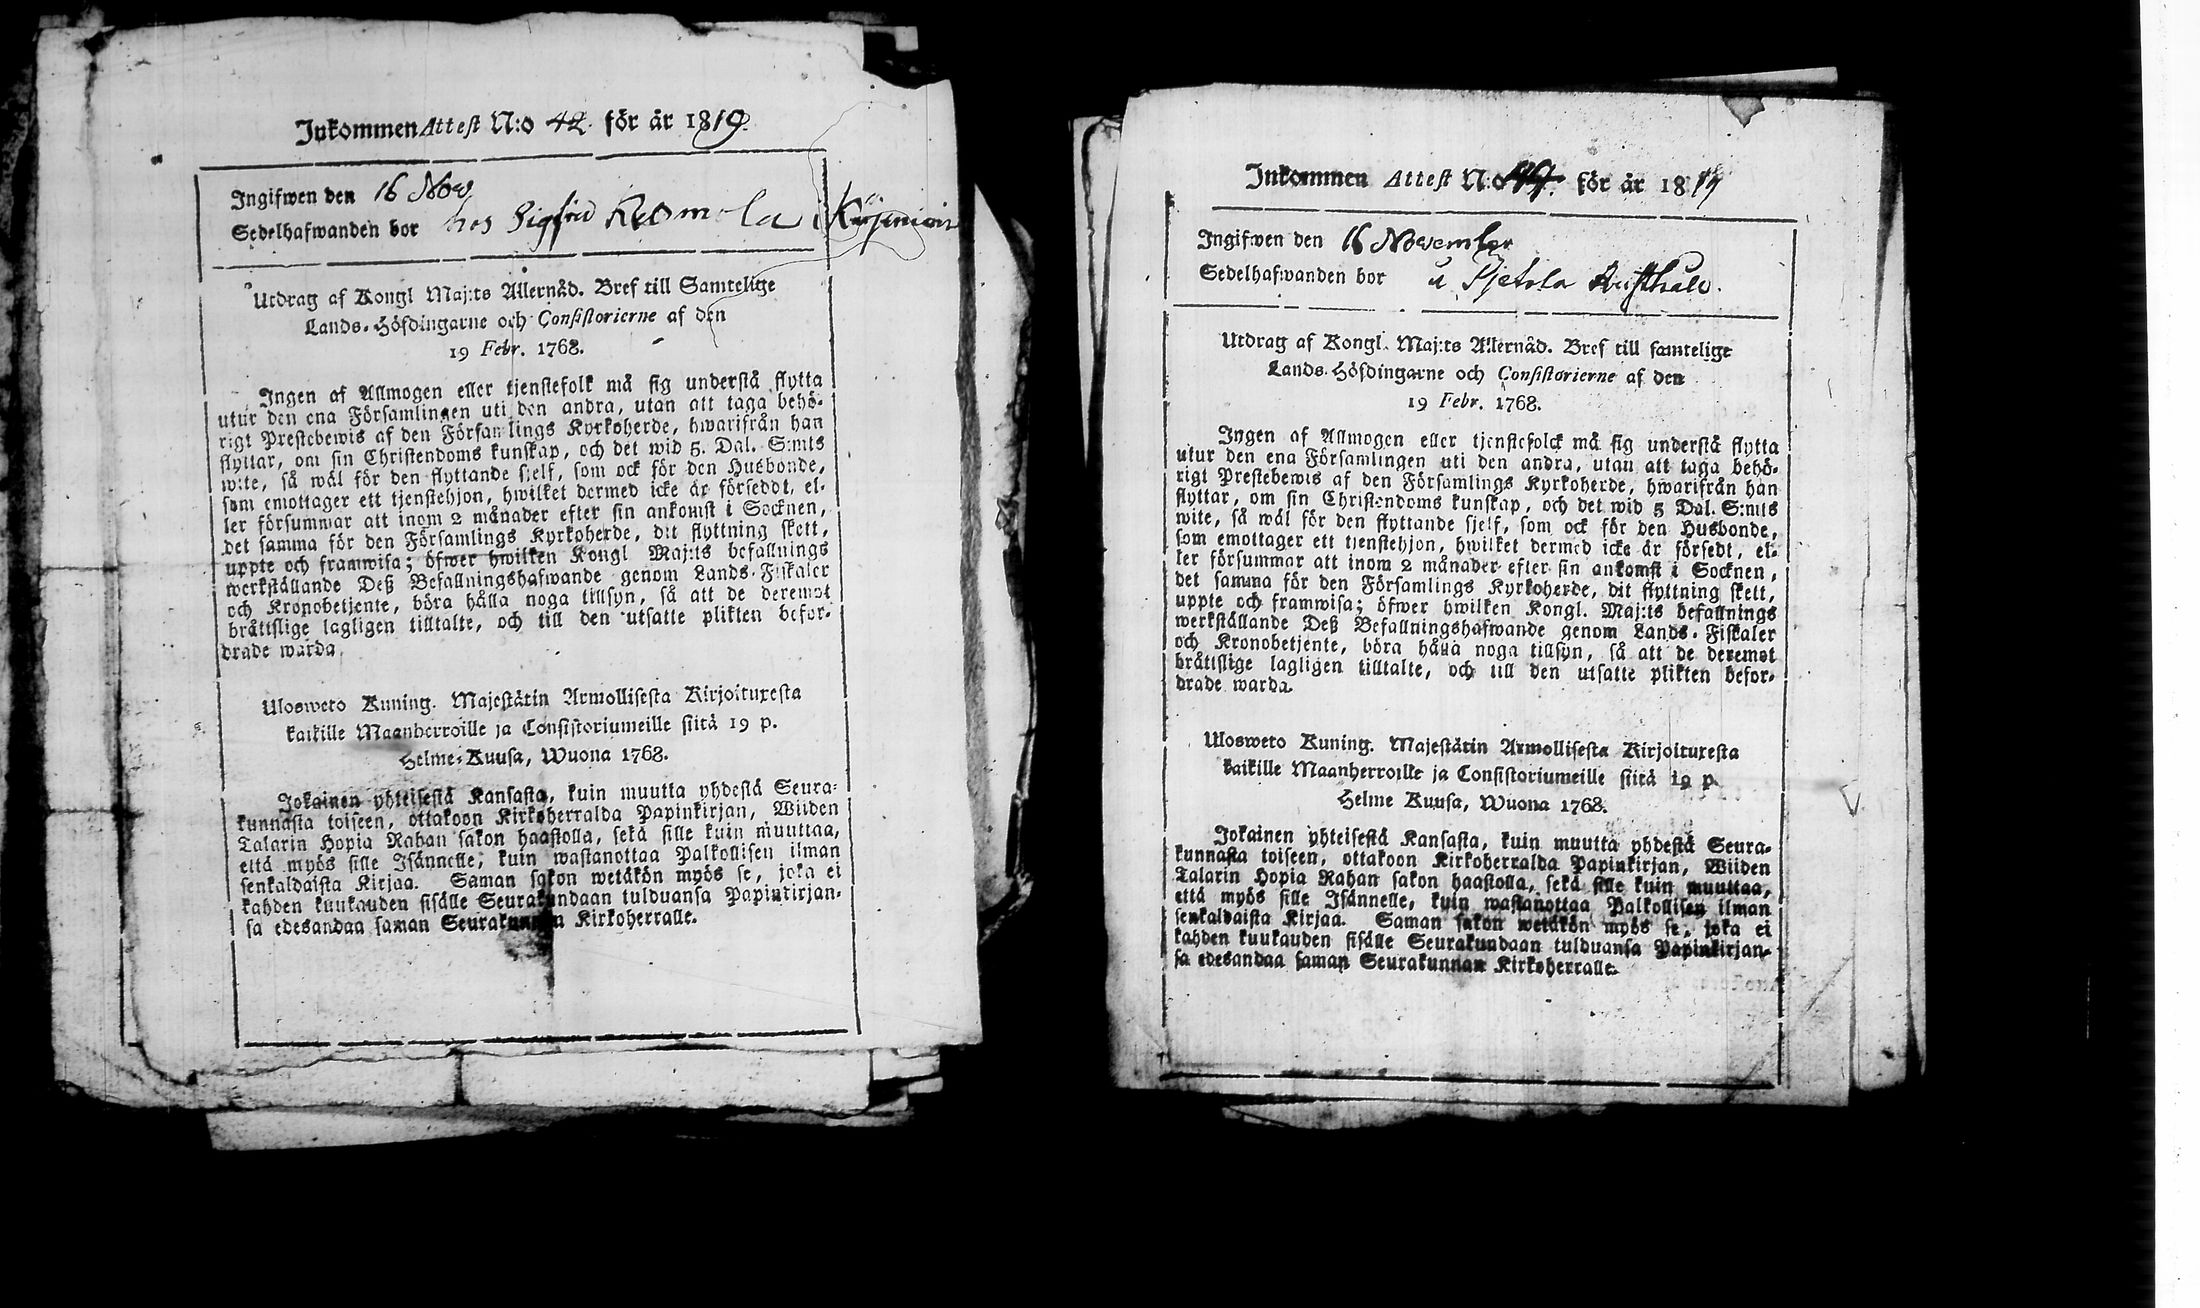 Inkommen Attest N:o 42. för år 1819.
Ingifwen den 16 Nov
Sedelhafwanden bor hos Sigfrid
Utdrag af Kongl Maj:ts Allernåd. Bref till Samtelige
Lands-Höfdingarne och Consistorierne af den
19 Febr. 1768.
Ingen af Allmogen eller tjenstefolk må sig understå flytta
utur den ena Församlingen uti den andra, utan att taga behö-
rigt Prestebewis af den Församlings Kyrkoherde, hwarifrån han
flyttar, om sin Christendoms kunskap, och det wid 5. Dal. S:mts
wite, så wäl för den flyttande sjelf, som ock för den Husbonde,
som emottager ett tjenstehjon, hwilket dermed icke är förseddt, el-
ler försummar att inom 2 månader efter sin ankomst i Socknen,
det samma för den Församlings Kyrkoherde, dit flyttning skett,
uppte och framwisa; öfwer hwilken Kongl Maj:ts befallnings
werkställande Deß Befallningshafwande genom Lands-Fiskaler
och Kronobetjente, böra hålla noga tillsyn, så att de deremot
bråttslige lagligen tilltalte, och till den utsatte plikten befor-
drade warda.
Ulosweto Kuning. Majestätin Armollisesta Kirjoituxesta
kaikille Maanherroille ja Consistoriumeille siitä 19 p.
Helme-Kuusa, Wuona 1768.
Jokainen yhteisestä Kansasta, kuin muutta yhdestä Seura-
kunnasta toiseen, ottakoon Kirkoherralda Papinkirjan, Wiiden
Talarin Hopia Rahan sakon haastolla, sekä sille kuin muuttaa,
että myös sille Isännelle, kuin wastanottaa Palkollisen ilman
senkaldaista Kirjaa. Saman sakon wetäkön myös se, joka ei
kahden kuukauden sisälle Seurakundaan tulduansa Papinkirjan-
sa edesandaa saman Seurakunnan Kirkoherralle.
Inkommen Attest N:o för år 1819
Ingifwen den 16 November
Sedelhafwanden bor å Pjetola Rusthåll.
Utdrag af Kongl. Maj:ts Allernåd. Bref till samtelige
Lands-Höfdingarne och Consistorierne af den
19 Febr. 1768.
Ingen af Allmogen eller tjenstefolck må sig understå flytta
utur den ena Församlingen uti den andra, utan att taga behö-
rigt Prestebewis af den Församlings Kyrkoherde, hwarifrån han
flyttar, om sin Christendoms kunskap, och det wid 5 Dal. S:mts
wite, så wäl för den flyttande sjelf, som ock för den Husbonde,
som emottager ett tjenstehjon, hwilket dermed icke är försedt, el-
ler försummar att inom 2 månader efter sin ankomst i Socknen,
det samma för den Församlings Kyrkoherde, dit flyttning skett,
uppte och framwisa; öfwer hwilken Kongl. Maj:ts befallnings
werkställande Deß Befallningshafwande genom Lands-Fiskaler
och Kronobetjente, böra hålla noga tillsyn, så att de deremot
bråttslige lagligen tilltalte, och till den utsatte plikten befor-
drade warda.
Ulosweto Kuning. Majestätin Armollisesta Kirjoituxesta
kaikille Maanherroille ja Consistoriumeille siitä 19 p.
Helme Kuusa, Wuona 1768.
Jokainen yhteisestä Kansasta, kuin muutta yhdestä Seura-
kunnasta toiseen, ottakoon Kirkoherralda Papinkirjan, Wiiden
Talarin Hopia Rahan sakon haastolla, sekä sille kuin muuttaa,
että myös sille Isännelle, kuin wastanottaa Palkollisen ilman
senkaldaista Kirjaa. Saman sakon wetäkön myös se, joka ei
kahden kuukauden sisälle Seurakundaan tulduansa Papinkirjan-
sa edesandaa saman Seurakunnan Kirkoherralle.